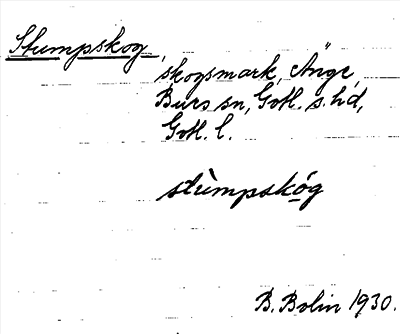 Stumpskog,
skogsmark, Änge,
Burs sn, Gotl. s. hd,
Gotl. l.
stùmpskóg
B. Bolin 1930.